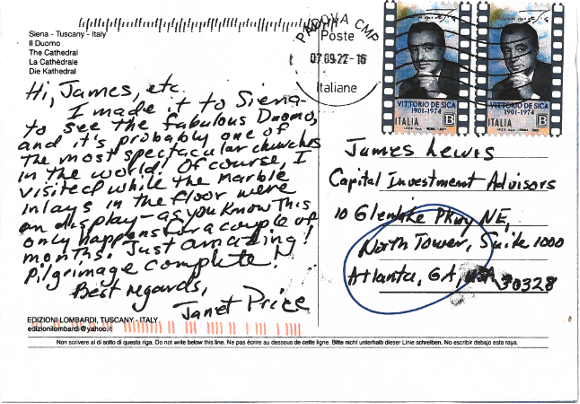 Siena - Tuscany - Italy
Il Duomo
The Cathedral
La Cathédrale
Die Kathedral
Hi, James, etc.
I made it to Siena
to see the fabulous Duomo,
and it's probably one of
the most spectacular churches
in the world! Of course, I
visited while the marble
inlays in the floor were
on display - as you know this
only happens for a couple of
months. Just amazing!
Pilgrimage complete!
Best regards,
Janet Price
EDIZIONI LOMBARDI, TUSCANY - ITALY
edizionilombardi@yahoo.it
PADOVA CMP
Poste
07.09.22-16
Italiane
VITTORIO DE SICA
1901-1974
ITALIA B
VITTORIO DE SICA
1901-1974
ITALIA B
James Lewis
Capital Investment Advisors
10 Glenlake Pkwy NE,
North Tower, Suite 1000
Atlanta, GA, USA 30328
Non scrivere al di sotto di questa riga. Do not write below this line. Ne pas écrire au dessous de cette ligne. Bitte nicht unterhalb dieser Linie schreiben. No escribir debajo esta raya.